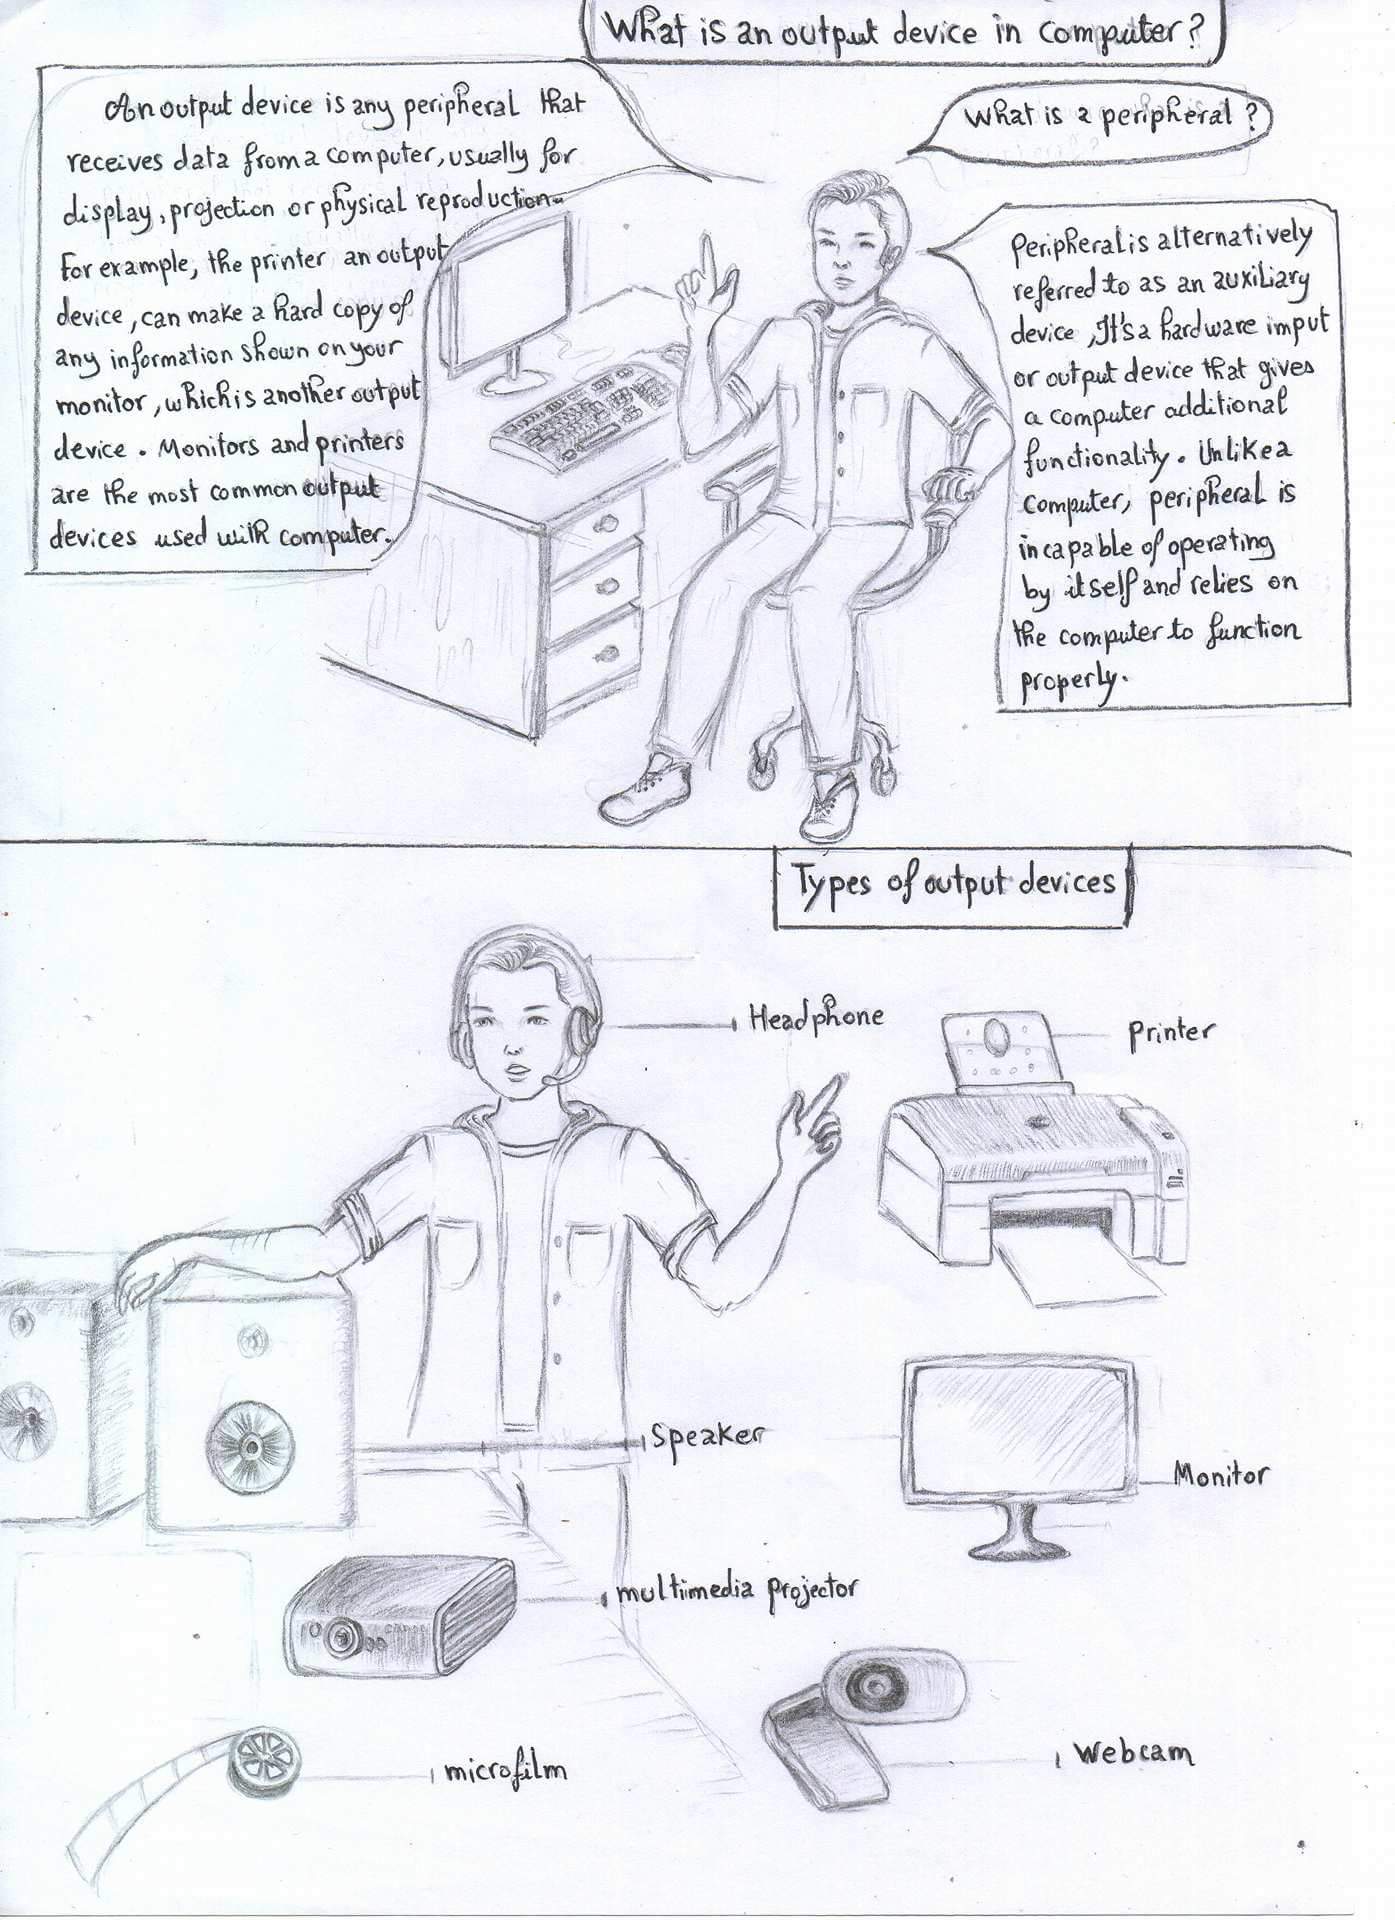 What is an output device in computer?
An output device is any peripheral that
receives data from a computer, usually for
display, projection or physical reproduction.
For example, the printer an output
device, can make a hard copy of
any information shown on your
monitor, which is another output
device. Monitors and printers
are the most common output
devices used with computer.
What is a peripheral?
Peripheral is alternatively
referred to as an auxiliary
device, It's a hardware imput
or output device that gives
a computer additional
functionality. Unlike a
computer, peripheral is
incapable of operating
by itself and relies on
the computer to function
properly.
Types of output devices
Headphone
Printer
Speaker
Monitor
multimedia projector
microfilm
Webcam